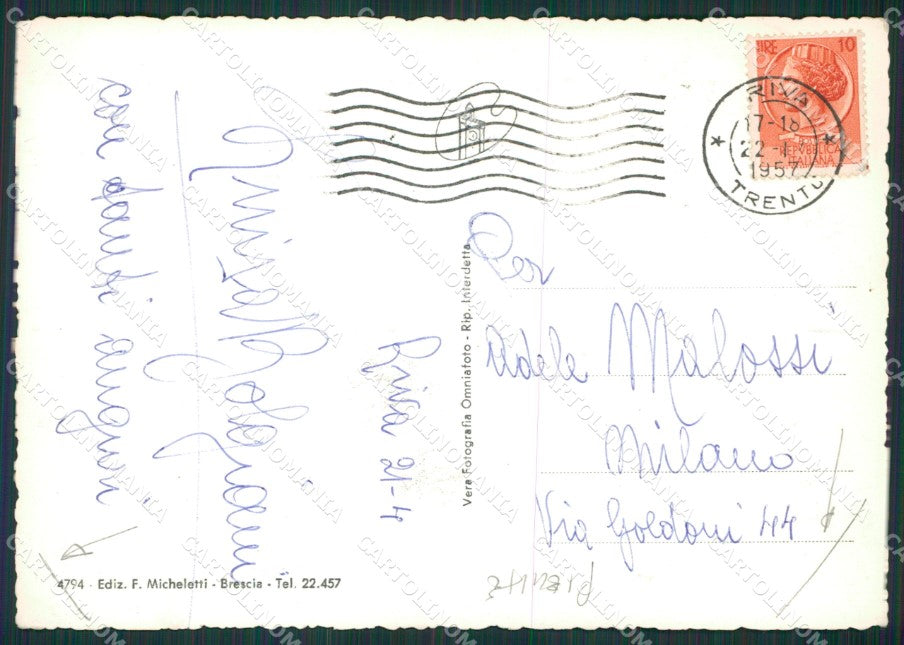 con tanti auguri
Riva 21-4
LIRE 10
REPUBBLICA
ITALIANA
RIVA
17-18
22-4
1957
TRENTO
Adele Malossi
Milano
Via Goldoni 44
Vera Fotografia Omniafoto - Rip. Interdetta
4794 - Ediz. F. Micheletti - Brescia - Tel. 22.457
CARTOLINOMANIA